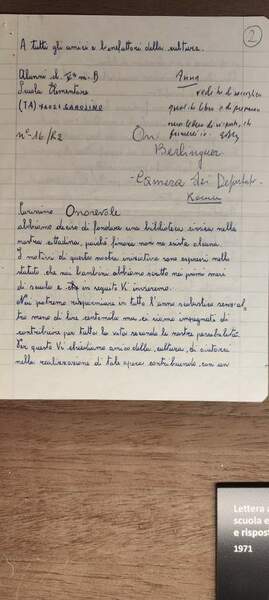 2
A tutti gli amici e benefattori della cultura.
Alunni di Vª m. B
Scuola Elementare
(TA) 74021 CAROSINO
nº 16/R2
Anna
vedi di
qualche libro e di preparare
una lettera di risposta che
On
Berlinguer
- Camera dei Deputati -
Roma
Onorevole
abbiamo deciso di fondare una biblioteca civica nella
nostra cittadina, perché finora non ne esiste alcuna.
I motivi di questa nostra iniziativa sono espressi nello
statuto che noi bambini abbiamo scritto nei primi mesi
di scuola e che in seguito Vi invieremo.
Noi potremo risparmiare in tutto l'anno scolastico
meno di lire centomila ma ci siamo impegnati di
contribuire per tutta la vita secondo le nostre possibilità.
Per questo Vi chiediamo amico della cultura, di aiutarci
nella realizzazione di tale opera contribuendo, con un
Lettera
scuola e
e rispost
1971